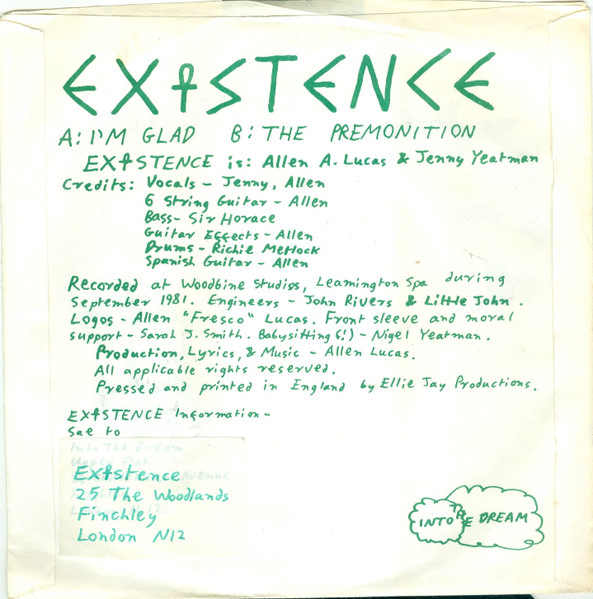 EX☥STENCE
A: I'M GLAD B: THE PREMONITION
EX☥STENCE is: Allen A. Lucas & Jenny Yeatman
Credits: Vocals - Jenny, Allen
6 String Guitar - Allen
Bass - Sir Horace
Guitar Effects - Allen
Drums - Richie Metlock
Spanish Guitar - Allen
Recorded at Woodbine Studios, Leamington Spa during
September 1981. Engineers - John Rivers & Little John.
Logos - Allen "Fresco" Lucas. Front sleeve and moral
support - Sarah J. Smith. Babysitting (!) - Nigel Yeatman.
Production, Lyrics, & Music - Allen Lucas.
All applicable rights reserved.
Pressed and printed in England by Ellie Jay Productions.
EX☥STENCE Information -
Sae to
Into The Dream
Avenue
Ex☥stence
25 The Woodlands
Finchley
London N12
INTO THE DREAM